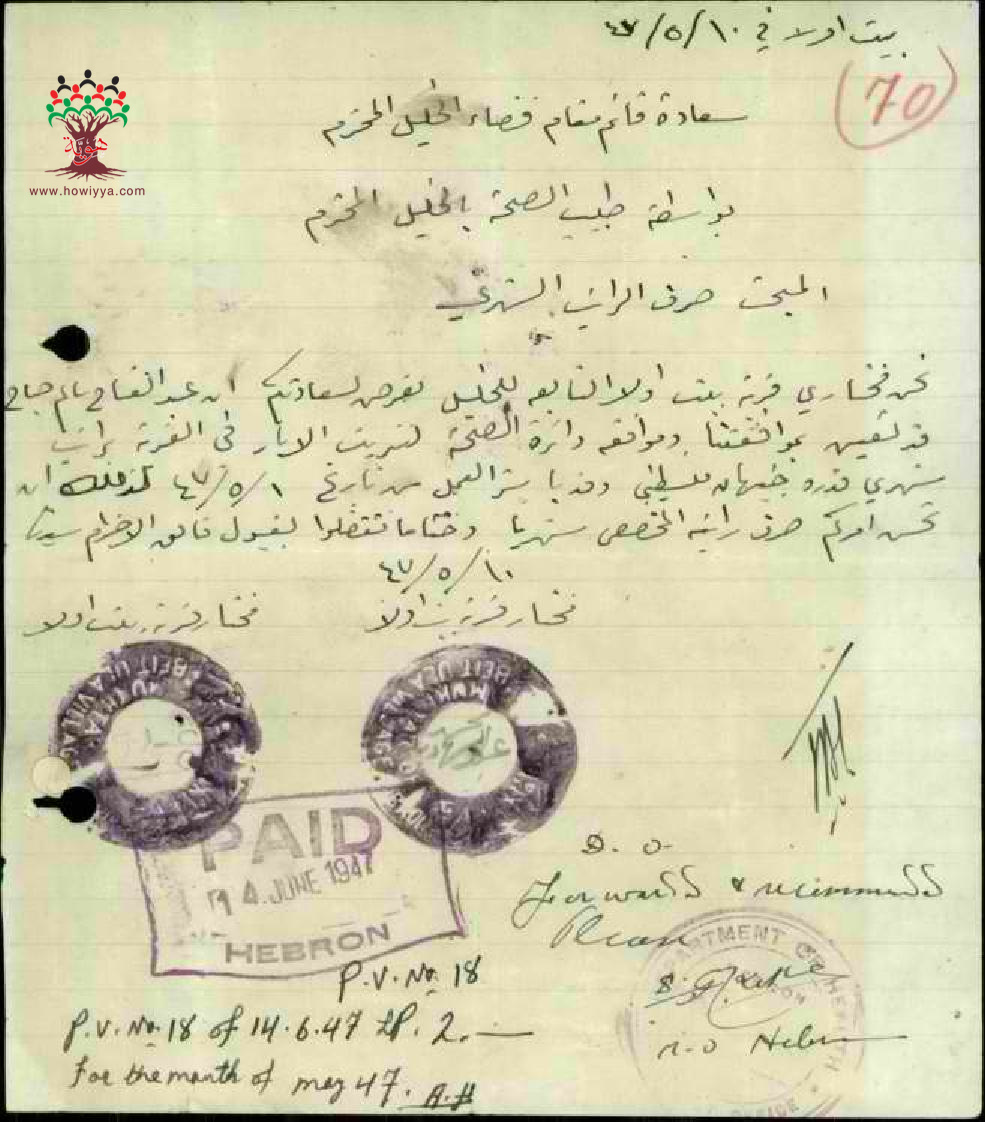 بيت اولا في ١٠/٥/٤٧
70
سعادة قائم مقام قضاء الخليل المحترم
هوية
www.howiyya.com
بواسطة طبيب الصحة بالخليل المحترم
المبحث صرف الراتب الشهري
نحن مختاري قرية بيت اولا التابعه للخليل نعرض لسعادتكم ان عبد الفتاح
قد تعين بموافقتنا وموافقه دائرة الصحة لتزييت الابار في القرية براتب
شهري قدره جنيهان فلسطيني وقد باشر العمل من تاريخ ١/٥/٤٧ لذلك ان
تحسن امركم صرف راتبه المخصص شهريا وختاما تفضلوا بقبول فائق الاحترام سيدي
١٠/٥/٤٧
مختار قرية بيت اولا
مختار قرية بيت اولا
BEIT ULA VILLAGE
MUKHTAR
BEIT ULA VILLAGE
MUKHTAR
PAID
14 JUNE 1947
HEBRON
D. O.
Forwarded & recommended
Please
DEPARTMENT OF HEALTH
OFFICE
M.O Hebron
P.V. No. 18
P.V. No. 18 of 14.6.47 LP. 2.—
For the month of may 47. A.H